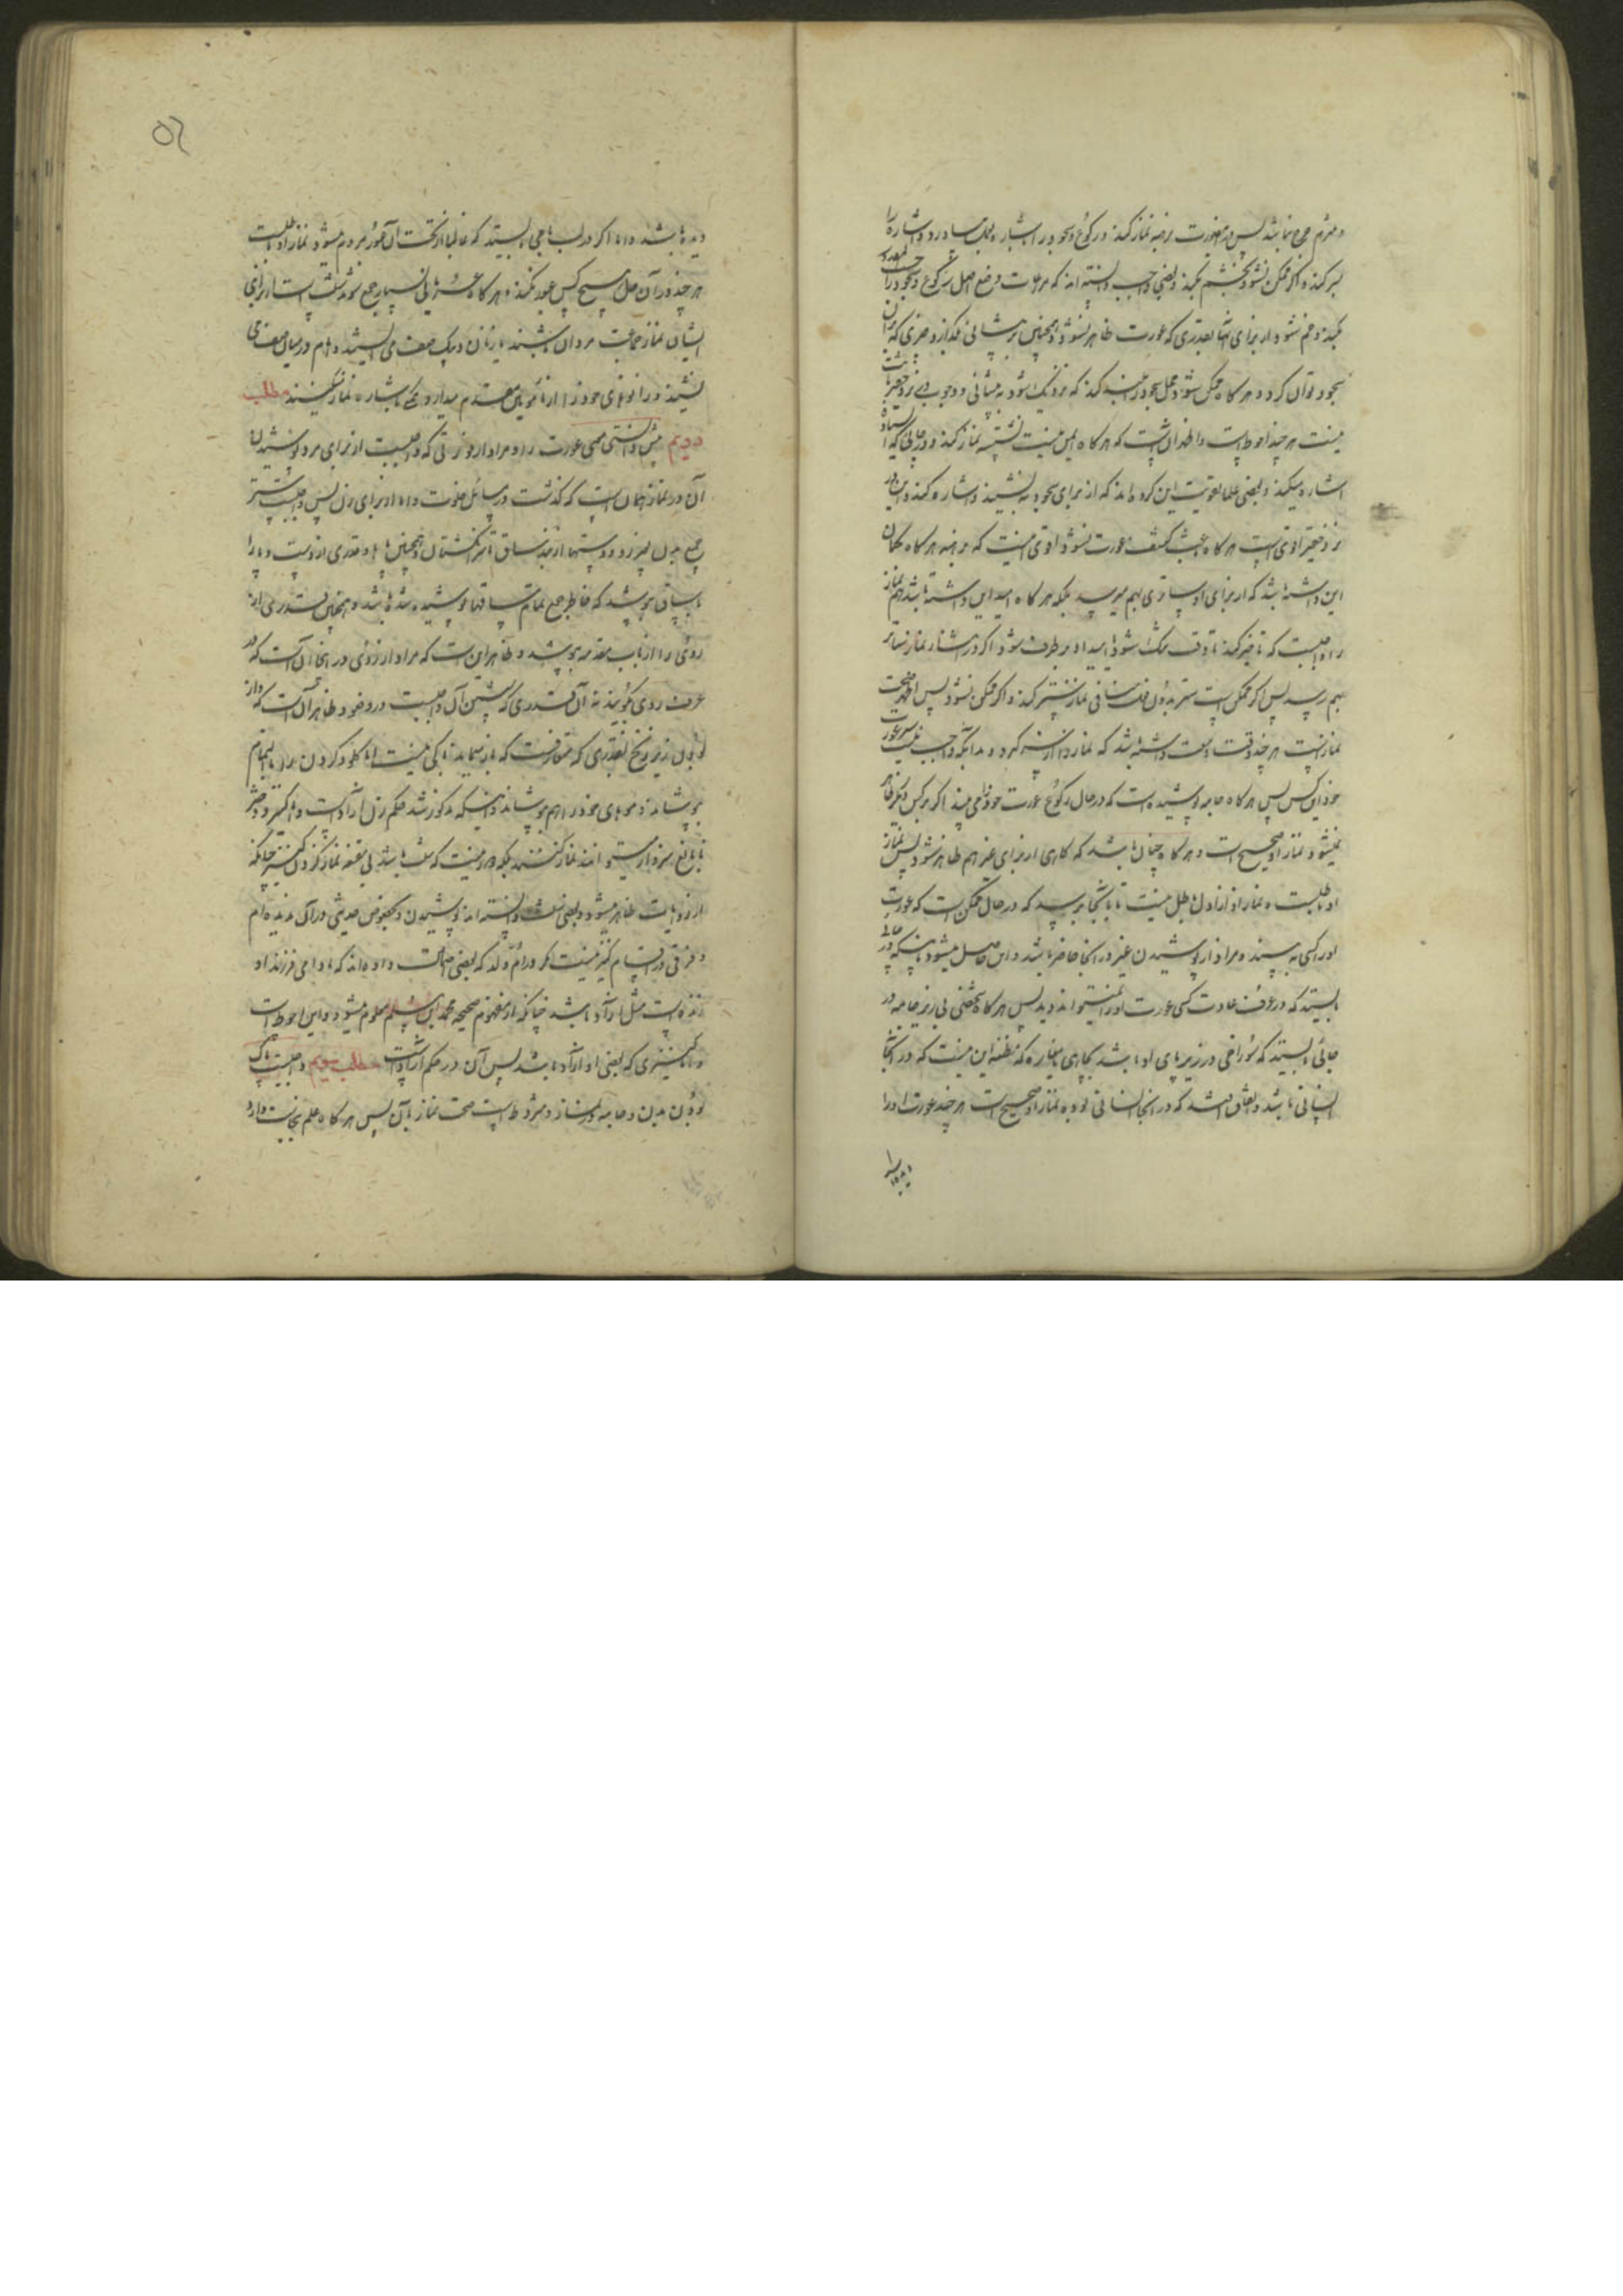 بسر کند و اگر ممکن نشود بچشم بکند و بعضی واجب دانسته اند که
بکند و خم نشود از برای آنها بقدری که عورت ظاهر نشود و همچنین بر پیشانی بگذارد چیزی که بر آن
سجود توان کرد و هر گاه ممکن شود محل سجود را بلند کند که نزدیک شود به پیشانی و وجوب
نیست هر چند احوط است و اظهر آن است که هر گاه ایمن نیست نشسته نماز کند و در حالی که ایستاده
اشاره میکند و بعضی علما تقویت این کرده اند که از برای سجود بنشیند و اشاره کند و این
نزد حقیر اقوی است هر گاه باعث کشف عورت نشود و اقوی اینست که برهنه هر گاه گمان
این داشته باشد که از برای او ساتری بهم میرسد بلکه هر گاه امید این داشته باشد هم نماز
را واجبست که تأخیر کند تا وقت تنگ شود یا امید او بر طرف شود و اگر در اثنای نماز ساتر
بهم رسد پس اگر ممکن است ستر بدون فعل منافی نماز ستر کند و اگر ممکن نشود پس اظهر صحت
نماز است هر چند وقت وسعت داشته باشد که نماز را از سر گیرد و بدانکه واجب نیست ستر عورت
خود از این کس پس هر گاه جامه پوشیده است که در حال رکوع عورت خود را می بیند اگر بر کس دیگر ظاهر
نمیشود نماز او صحیح است و هر گاه چنان باشد که گاهی از برای غیر هم ظاهر شود پس نماز
او باطلست و نماز او از اول باطل نیست تا بآنجا برسد که در حال ممکن است که عورت
او را کسی به بیند و مراد از پوشیدن غیر در آنجا حاضر باشد و این حاصل میشود باینکه در جائی
بایستد که در عرف و عادت کسی عورت او را نمیتواند دید پس هر گاه شخصی بی زیر جامه در
جائی بایستد که سوراخی در زیر پای او باشد بچاهی یا مغاره که مظنه این نیست که در آنجا
انسانی باشد و اتفاق افتد که در آنجا انسانی بوده نماز او صحیح است هر چند عورت او را
دیده باشد و اما اگر در لب بامی بایستد که غالبا از تحت آن عبور مردم میشود نماز او باطلست
هر چند در آن حال هیچ کس عبور نکند و هر گاه عریانی بسیار جمع شوند سنت است از برای
ایشان نماز جماعت مردان باشند یا زنان و یک صف می ایستند و امام در میان صف می
نشیند و زانوهای خود را از مأمومین مقدم میدارد و همه باشاره نماز میکنند مطلب
دویم پیش دانستی معنی عورت را و مراد از او و زنی که واجبست از برای مرد پوشیدن
آن در نماز همان است که گذشت در مسائل خلوت و اما از برای زن پس واجبست ستر
جمیع بدن بغیر رو و دستها از بند ساق تا سر انگشتان و همچنین پاها و قدری از دست و پا را
با ساق بپوشد که خاطر جمع تمام ساقها پوشیده شده باشد و همچنین قدری از
روی را از باب مقدمه بپوشد و ظاهر این است که مراد از روی در اینجا آن است که در
عرف روی گویند نه آن قدری که شستن آن واجبست در وضو و ظاهر آن است که باز
بودن زیر زنخ بقدری که متعارفست که باز بماند باکی نیست اما گلو و گردن را باید تمام
بپوشاند و موهای خود را هم بپوشاند و اینکه مذکور شد حکم زن آزاد است و اما کنیز و دختر
نابالغ سر باز میتوانند نماز کنند بلکه دور نیست که سنت باشد بی مقنعه نماز کردن کنیز چنانکه
از روایات ظاهر میشود و بعضی سنت دانسته اند پوشیدن و بخصوص حدیثی در آن ندیده ام
و فرقی در اقسام کنیز نیست مگر در ام ولد که بعضی احتمال داده اند که مادامی فرزند او
زنده است مثل آزاد باشد چنانکه از مفهوم صحیحه محمد ابن مسلم معلوم میشود و این احوط است
و اما کنیزی که بعضی از او آزاد باشد پس آن در حکم آزاد است مطلب سیم واجبست پاک
بودن بدن و جامه در نماز و مشروط است صحت نماز بآن پس هر گاه علم بنجاست دارد